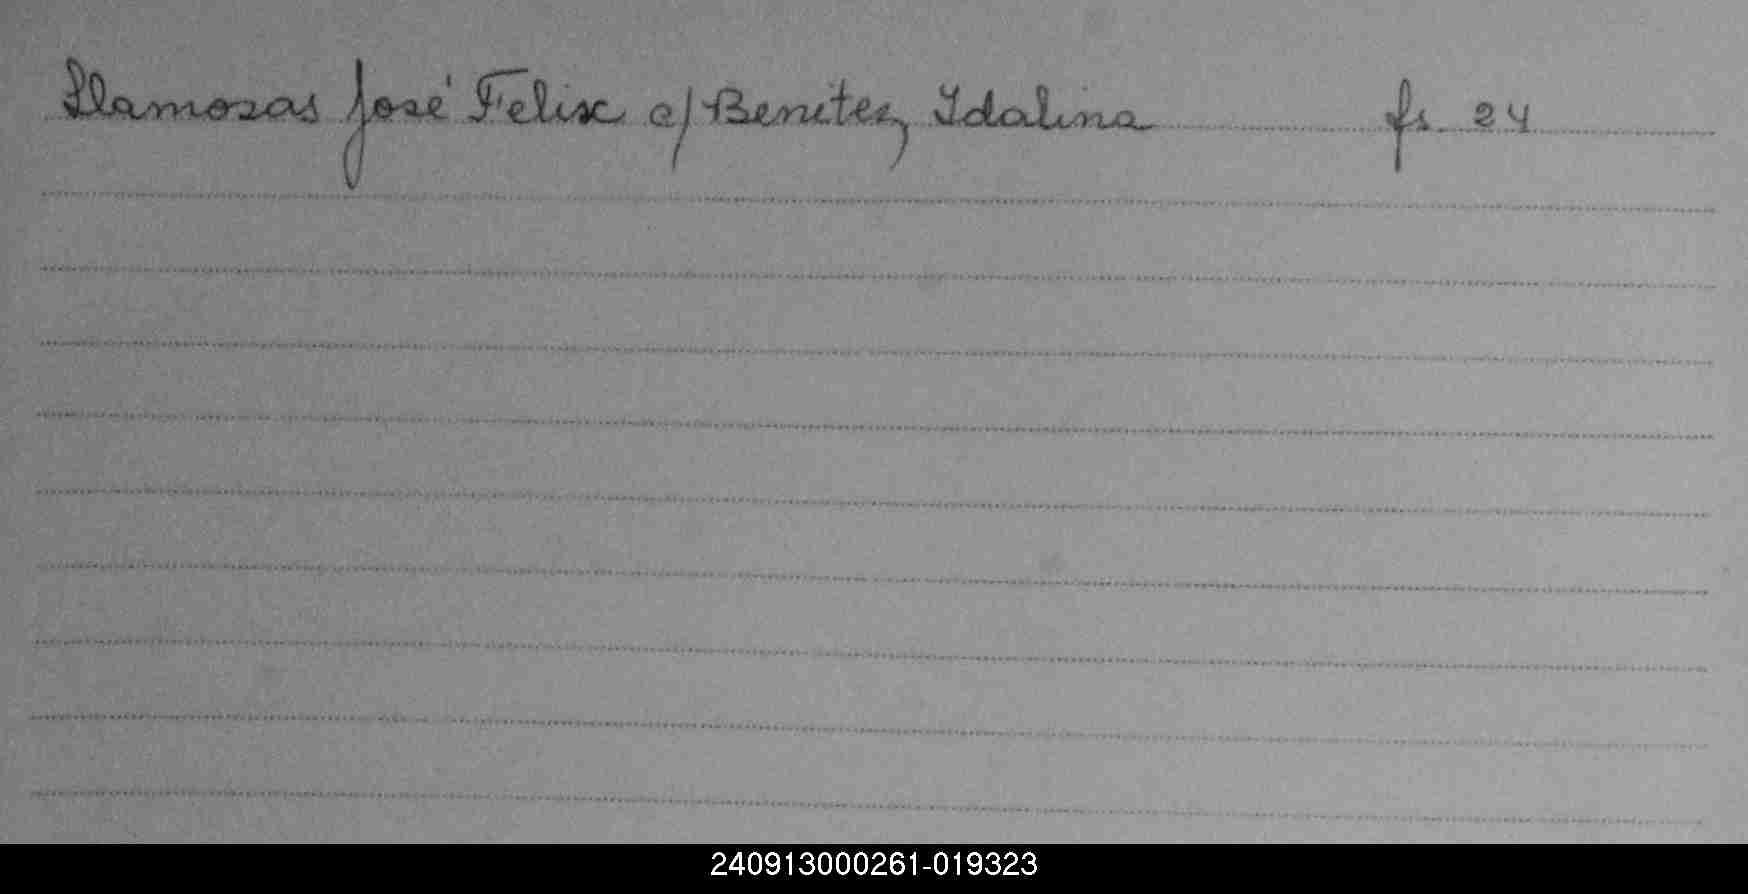 Llamosas José Felix c/ Benitez, Idalina fs. 24
240913000261-019323